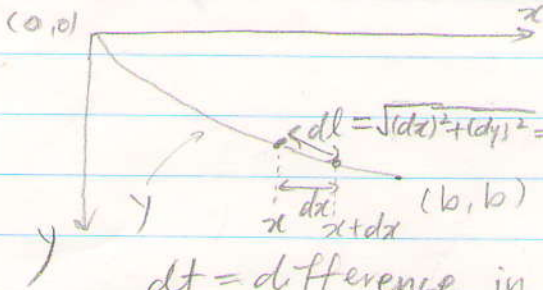 (0,0) x
dl = √(dx)²+(dy)² =
y dx (b,b)
x x+dx
y
dt = difference in